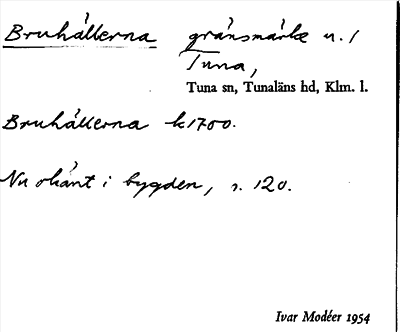 Bruhällerna gränsmärke n. 1
Tuna,
Tuna sn, Tunaläns hd, Klm. l.
Bruhällerna k 1700.
Nu okänt i bygden, s. 120.
Ivar Modéer 1954